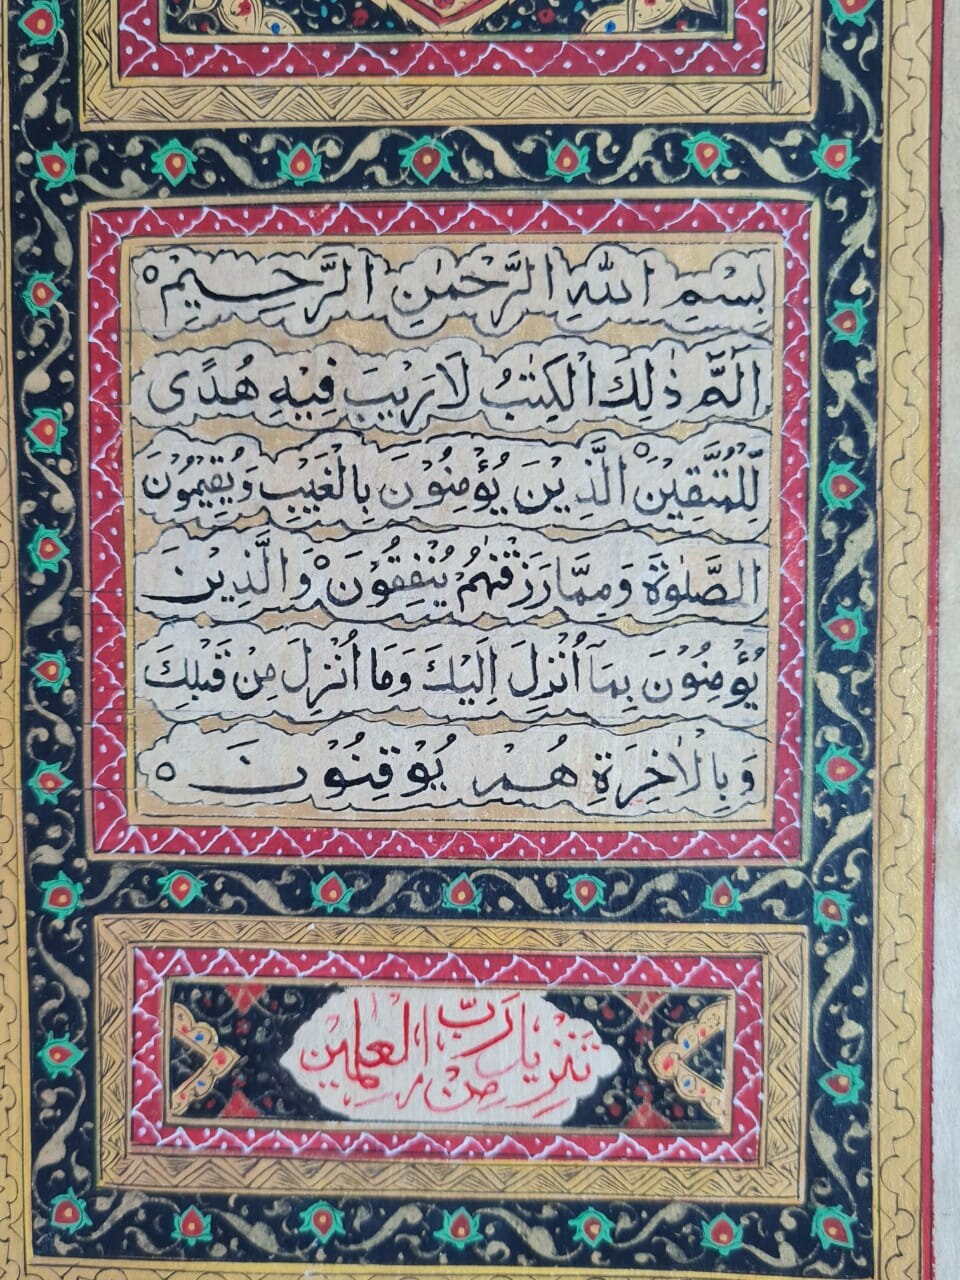 بِسْمِ اللهِ الرَّحْمٰنِ الرَّحِيْمِ ○
اَلٓمّٓ ذٰلِكَ الْكِتٰبُ لَا رَيْبَ فِيْهِ هُدًى
لِّلْمُتَّقِيْنَ ○ الَّذِيْنَ يُؤْمِنُوْنَ بِالْغَيْبِ وَيُقِيْمُوْنَ
الصَّلٰوةَ وَمِمَّا رَزَقْنٰهُمْ يُنْفِقُوْنَ ○ وَالَّذِيْنَ
يُؤْمِنُوْنَ بِمَآ اُنْزِلَ اِلَيْكَ وَمَا اُنْزِلَ مِنْ قَبْلِكَ
وَبِالْاٰخِرَةِ هُمْ يُوْقِنُوْنَ ○
تَنْزِيْلٌ مِنْ رَبِّ الْعٰلَمِيْنَ